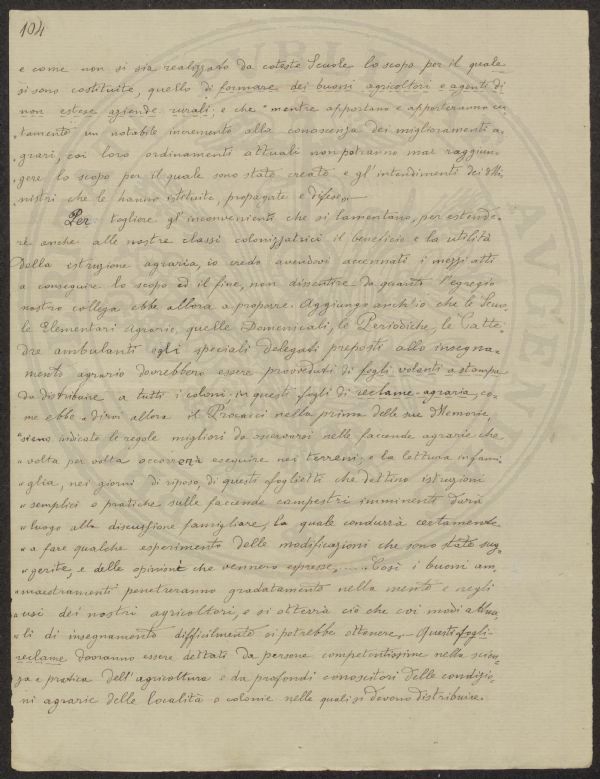 104
e come non si sia realizzato da coteste Scuole lo scopo per il quale
si sono costituite, quello di formare dei buoni agricoltori e agenti di
non estese aziende rurali; e che "mentre apportano e apporteranno cer-
"tamente un notabile incremento alla conoscenza dei miglioramenti a-
"grari, coi loro ordinamenti attuali non potranno mai raggiun-
"gere lo scopo per il quale sono state create e gl'intendimenti dei Mi-
"nistri che le hanno istituite, propagate e difese"—
Per togliere gl'inconvenienti che si lamentano, per estende-
re anche alle nostre classi colonizzatrici il beneficio e la utilità
della istruzione agraria, io credo avendovi accennati i mezzi atti
a conseguire lo scopo ed il fine, non dissentire da quanto l'egregio
nostro collega ebbe allora a proporre. Aggiungo anch'io che le Scuo-
le Elementari Agrarie, quelle Domenicali, le Periodiche, le Catte-
dre ambulanti o gli speciali delegati preposti allo insegna-
mento agrario dovrebbero essere provveduti di fogli volanti a stampa
da distribuire a tutti i coloni; in questi fogli di reclame-agraria, co-
me ebbe a dirvi allora il Procacci nella prima delle sue Memorie,
"sieno indicate le regole migliori da osservarsi nelle faccende agrarie che
"volta per volta occorrerà eseguire nei terreni; e la lettura in fami-
"glia, nei giorni di riposo, di questi foglietti che dettino istruzioni
"semplici e pratiche sulle faccende campestri imminenti darà
"luogo alla discussione famigliare, la quale condurrà certamente
"a fare qualche esperimento delle modificazioni che sono state sug-
"gerite, e delle opinioni che vennero espresse, ..... Così i buoni am-
"maestramenti penetreranno gradatamente nella mente e negli
"usi dei nostri agricoltori, e si otterrà ciò che coi modi attua-
"li di insegnamento difficilmente si potrebbe ottenere,— Questi fogli-
reclame dovranno essere dettati da persone competentissime nella scien-
za e pratica dell'agricoltura e da profondi conoscitori delle condizio-
ni agrarie delle località o colonie nelle quali si devono distribuire.